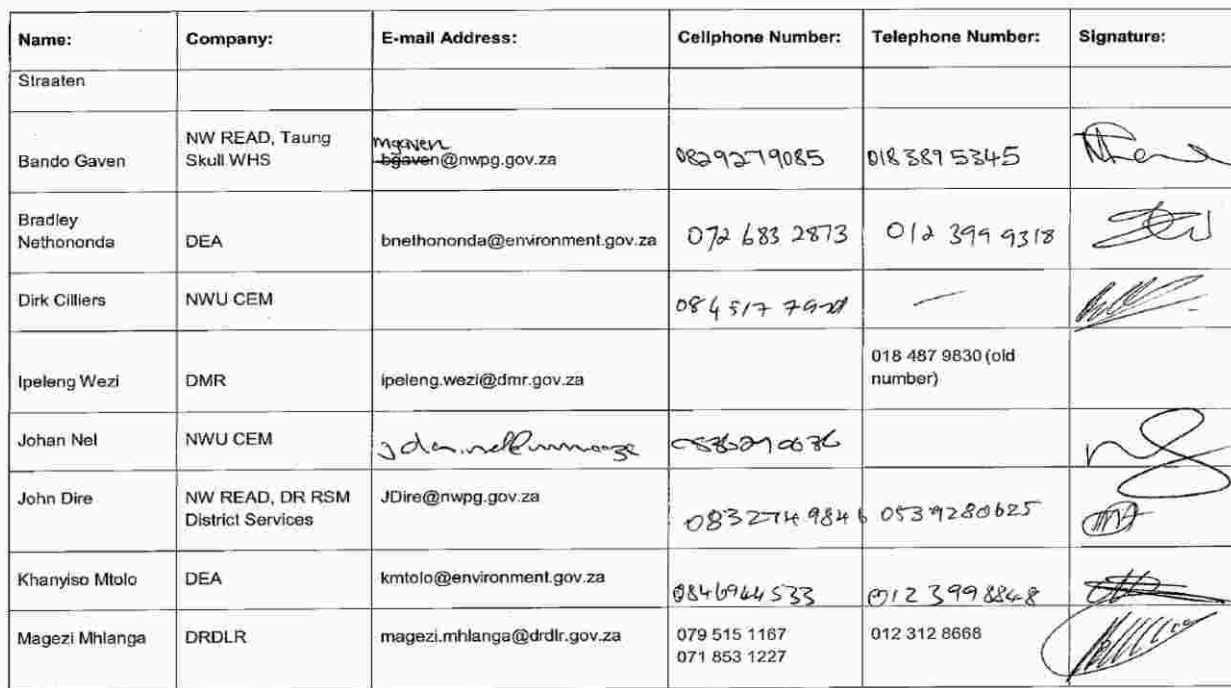 Name: Company: E-mail Address: Cellphone Number: Telephone Number: Signature:
Straaten
Bando Gaven NW READ, Taung Skull WHS mgaven bgaven@nwpg.gov.za 0829279085 0183895345
Bradley Nethononda DEA bnethononda@environment.gov.za 072 683 2873 012 399 9318
Dirk Cilliers NWU CEM 084 517 —
Ipeleng Wezi DMR ipeleng.wezi@dmr.gov.za 018 487 9830 (old number)
Johan Nel NWU CEM
John Dire NW READ, DR RSM District Services JDire@nwpg.gov.za 0832749846 0539280625
Khanyiso Mtolo DEA kmtolo@environment.gov.za 0846944533 012 3998848
Magezi Mhlanga DRDLR magezi.mhlanga@drdlr.gov.za 079 515 1167 012 312 8668
071 853 1227